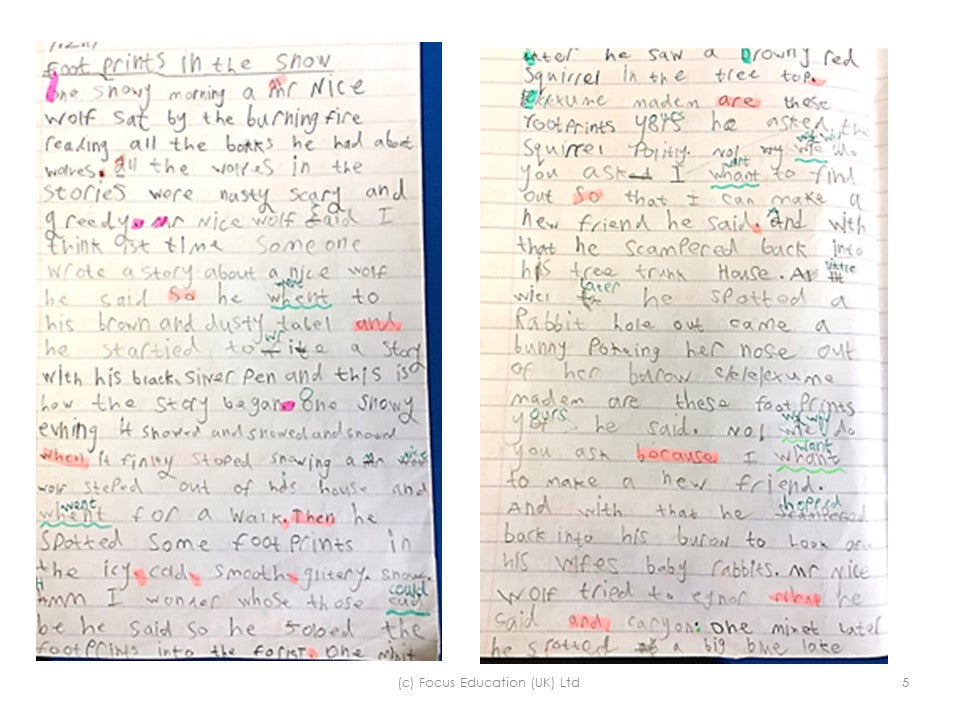 Foot prints in the snow
One snowy morning a Mr Nice
wolf sat by the burning fire
reading all the books he had about
wolves. All the wolves in the
stories were nasty scary and
greedy. Mr Nice wolf said I
think ist time some one
wrote a story about a nice wolf
he said so he whent to
went
his brown and dusty tabel and
he startied to write a story
with his black, silver pen and this is
how the story began. One snowy
evning it snowed and snowed and snowed
when it finlly stoped snowing a Mr
wolf steped out of his house and
whent for a walk. Then he
went
spotted some foot prints in
the icy, cold, smooth, glitery, snow.
Hmm I wonder whose those
could
be he said so he the
footprints into the forist. One
later he saw a browny red
Squirrel in the tree top.
madem are these
footprints he asked the
yours
Squirrel Politly. No!
you ask I whant to find
want
out so that I can make a
new friend he said. And with
that he scampered back into
his tree trunk House. A
little
later he spotted a
Rabbit hole out came a
bunny Poking her nose out
of her burow exume
madem are these foot prints
yours he said. No! do
you ask because I whant
want
to make a new friend.
And with that he scampered
hopped
back into his burow to Look
his wifes baby rabbits. Mr Nice
wolf tried to egnor what he
said and caryon: One minet later
he spotted a big blue lake
(c) Focus Education (UK) Ltd
5